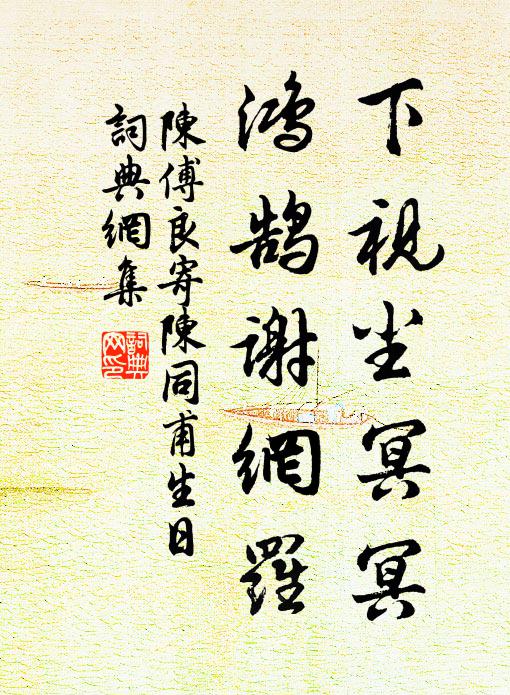 下視尘冥冥
鴻鵠謝網羅
陳傅良寄陳同甫生日
詞典網集
詞典网印